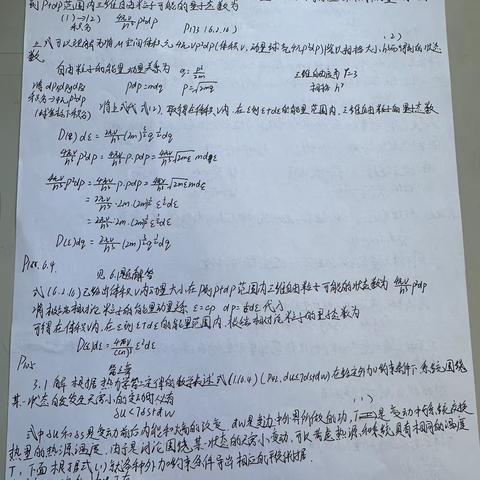 到p+dp范围内三维自由粒子可能的量子态数为
(1)→(2) 4πV/h³ p²dp
P173 (6.2.16) (2)
上式可以理解为将μ空间体积元 4πVp²dp (体积V,动量球壳4πp²dp)除以相格大小h³而得到的状态
数。
自由粒子的能量动量关系为 ε=p²/2m 三维自由度 r=3
将dpxdpydpz pdp=mdε p=√2mε 相格 h³
将上式代入(2),取得在体积V内,在ε到ε+dε的能量范围内,三维自由粒子的量子态数
D(ε)dε = 2πV/h³ (2m)^{3/2} ε^{1/2} dε
4πV/h³ p²dp = 4πV/h³ p·pdp = 4πV/h³ √2mε mdε
4πV/h³ p²dp = 4πV/h³ p·pdp = 4πV/h³ √2mε mdε
= 2πV/h³ ·2m·(2m)^{1/2} ε^{1/2} dε
= 2πV/h³ ·2m·(2m)^{1/2} ε^{1/2} dε
D(ε)dε = 2πV/h³ (2m)^{3/2} ε^{1/2} dε
6.4
见 6.1题解答
式(6.2.16)已给出体积V内动量大小在p到p+dp范围内三维自由粒子可能的状态数为 4πV/h³ p²dp
将极端相对论粒子的能量动量关系 ε=cp dp= dε 代入
可得在体积V内,在ε到ε+dε的能量范围内,极端相对论粒子的量子态数为
D(ε)dε = 4πV/(ch)³ ε²dε
第三章
3.1 解 根据热力学第二定律的数学表述式(1.16.4) ( dU≤TdS+dW) 在给定外加约束条件下,系统围绕
某一状态的 发生无穷小的 变动必有
δU<TδS+đW (1)
式中δU和δS是变动前后内能和熵的改变, đW是变动中外界所做的功, T是变动中与系统交换
热量的热源温度。由于是讨论围绕某一状态的无穷小变动,可以考虑热源和系统具有相同的温度
T,下面根据式(1)就各种外加约束条件导出相应的平衡判据。